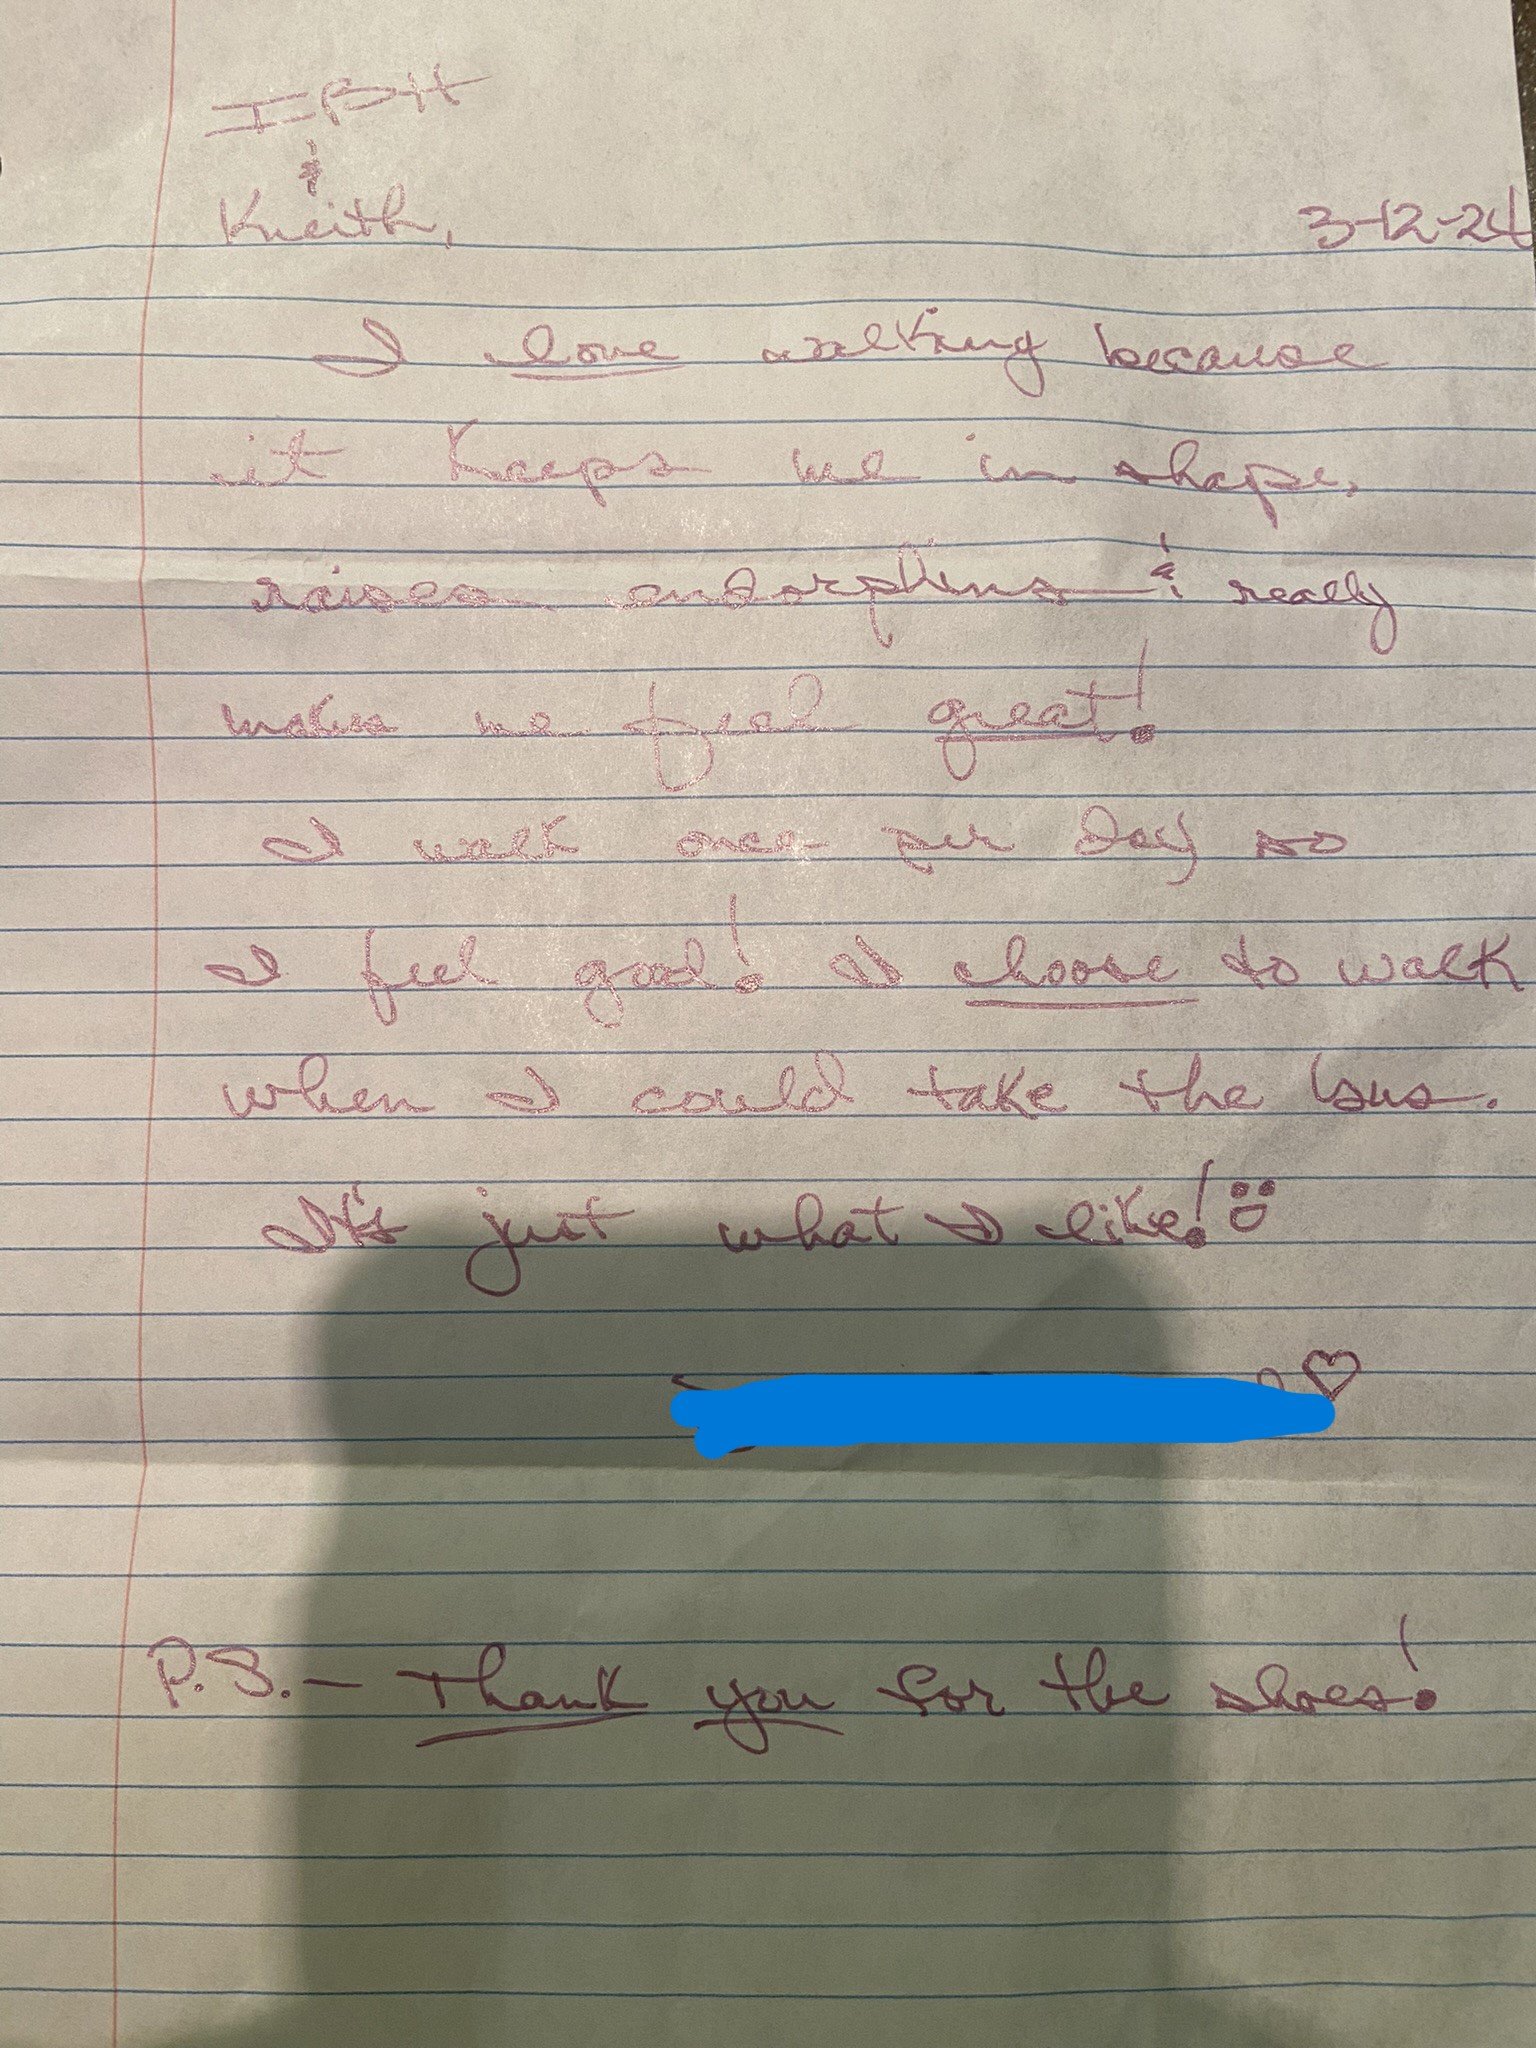 IBH
&
Kneith,
3-12-24
I love walking because
it keeps me in shape,
raises endorphins & really
makes me feel great!
I walk once per day so
I feel good! I choose to walk
when I could take the bus.
It's just what I like!
P.S. - Thank you for the shoes!